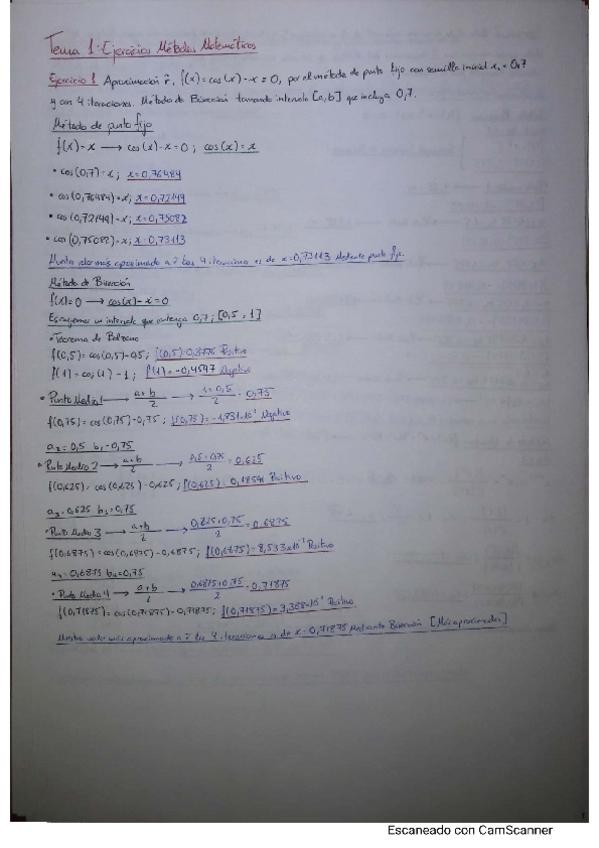 Tema 1: Ejercicios Métodos Matemáticos
Ejercicio 1 Aproximación r̂, f(x)=cos(x)-x=0, por el método de punto fijo con semilla inicial x₁=0,7
y con 4 iteraciones. Método de Bisección tomando intervalo [a,b] que incluya 0,7.
Método de punto fijo
f(x)=x → cos(x)-x=0 ; cos(x)=x
• cos(0,7)=x; x=0,76484
• cos(0,76484)=x; x=0,72149
• cos(0,72149)=x; x=0,75082
• cos(0,75082)=x; x=0,73113
valor más aproximado a r̂ las 4 iteraciones es de x=0,73113 Mediante punto fijo.
Método de Bisección
f(x)=0 → cos(x)-x=0
Escogemos un intervalo que contenga 0,7 ; [0,5 , 1]
• Teorema de Bolzano
f(0,5)=cos(0,5)-0,5; f(0,5)=0,3776 Positivo
f(1)=cos(1)-1; f(1)=-0,4597 Negativo
• Punto Medio 1 → a+b/2 → 1+0,5/2 = 0,75
f(0,75)=cos(0,75)-0,75; Negativo
a₂=0,5 b₂=0,75
• Punto Medio 2 → a+b/2 → 0,5+0,75/2 = 0,625
f(0,625)=cos(0,625)-0,625; f(0,625)= Positivo
a₃=0,625 b₃=0,75
• Punto Medio 3 → a+b/2 → 0,625+0,75/2 = 0,6875
f(0,6875)=cos(0,6875)-0,6875; Positivo
a₄=0,6875 b₄=0,75
• Punto Medio 4 → a+b/2 → 0,6875+0,75/2 = 0,71875
f(0,71875)=cos(0,71875)-0,71875; f(0,71875)= Positivo
valor más aproximado a r̂ las 4 iteraciones es de x=0,71875 Mediante Bisección
Escaneado con CamScanner